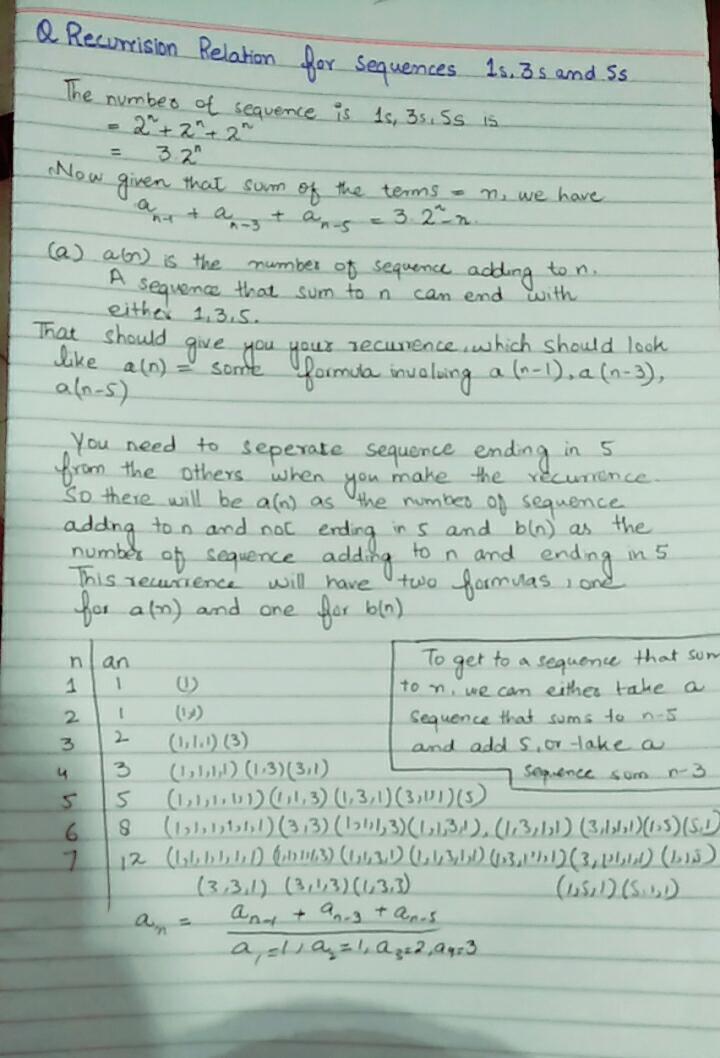 Q Recurrision Relation for sequences 1s, 3s and 5s
The number of sequence is 1s, 3s, 5s is
= 2ⁿ + 2ⁿ + 2ⁿ
= 3.2ⁿ
Now given that sum of the terms = n, we have
aₙ₋₁ + aₙ₋₃ + aₙ₋₅ = 3.2ⁿ - n.
(a) a(n) is the number of sequence adding to n.
A sequence that sum to n can end with
either 1,3,5.
That should give you your recurrence, which should look
like a(n) = some formula involving a(n-1), a(n-3),
a(n-5)
You need to seperate sequence ending in 5
from the others when you make the recurrence.
So there will be a(n) as the number of sequence
adding to n and not ending in 5 and b(n) as the
number of sequence adding to n and ending in 5
This recurrence will have two formulas, one
for a(n) and one for b(n)
n an
1 1 (1)
2 1 (1,1)
3 2 (1,1,1) (3)
4 3 (1,1,1,1) (1,3) (3,1)
5 5 (1,1,1,1,1) (1,1,3) (1,3,1) (3,1,1) (5)
6 8 (1,1,1,1,1,1) (3,3) (1,1,1,3) (1,1,3,1), (1,3,1,1) (3,1,1,1) (1,5) (5,1)
7 12 (1,1,1,1,1,1,1) (1,1,1,1,3) (1,1,1,3,1) (1,1,3,1,1) (1,3,1,1,1) (3,1,1,1,1) (1,1,5)
(3,3,1) (3,1,3) (1,3,3) (1,5,1) (5,1,1)
To get to a sequence that sum
to n, we can either take a
sequence that sums to n-5
and add 5, or take a
sequence sum n-3
aₙ = aₙ₋₁ + aₙ₋₃ + aₙ₋₅
a₁=1, a₂=1, a₃=2, a₄=3